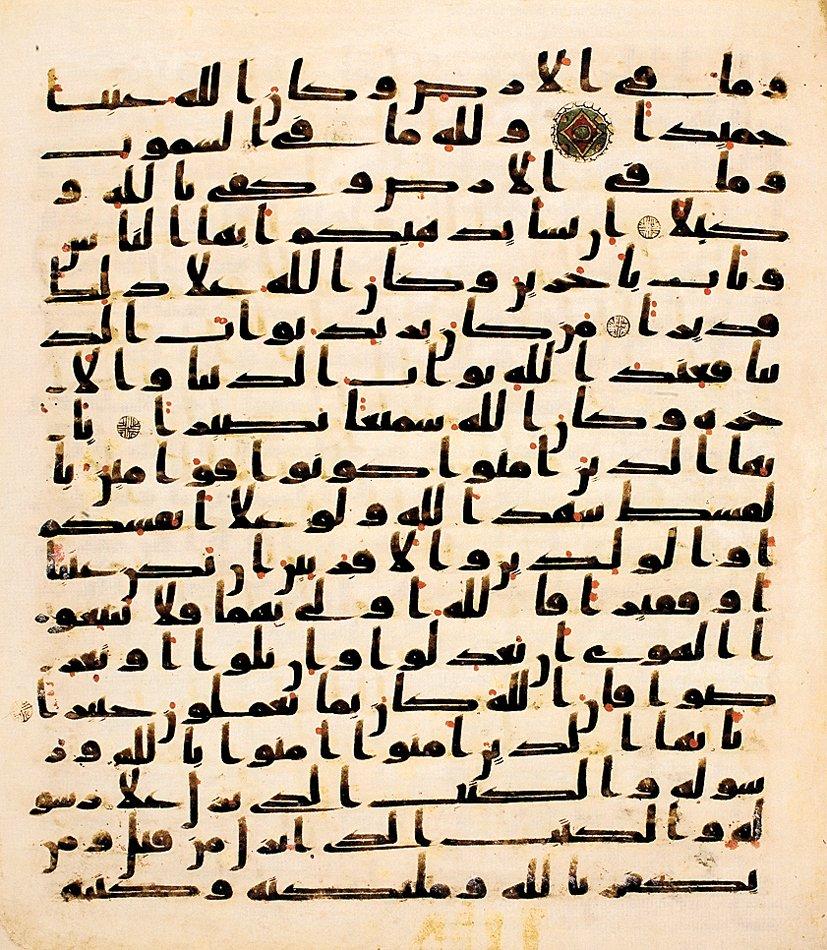 وما في الارض وكان الله غنيا
حميدا ولله ما في السموت
وما في الارض وكفى بالله و
كيلا ان يشا يذهبكم ايها الناس
ويات باخرين وكان الله علا ذلك
قديرا من كان يريد ثواب الد
نيا فعند الله ثواب الدنيا والا
خرة وكان الله سميعا بصيرا يا
يها الذين امنوا كونوا قوامين با
لقسط شهدا لله ولو علا انفسكم
او الولدين والاقربين ان يكن غنيا
او فقيرا فالله اولى بهما فلا تتبعو
ا الهوى ان تعدلوا وان تلوا او تعر
ضوا فان الله كان بما تعملون خبيرا
يايها الذين امنوا امنوا بالله ور
سوله والكتب الذي نزل علا رسو
له والكتب الذي انزل من قبل ومن
يكفر بالله ومليكته وكتبه